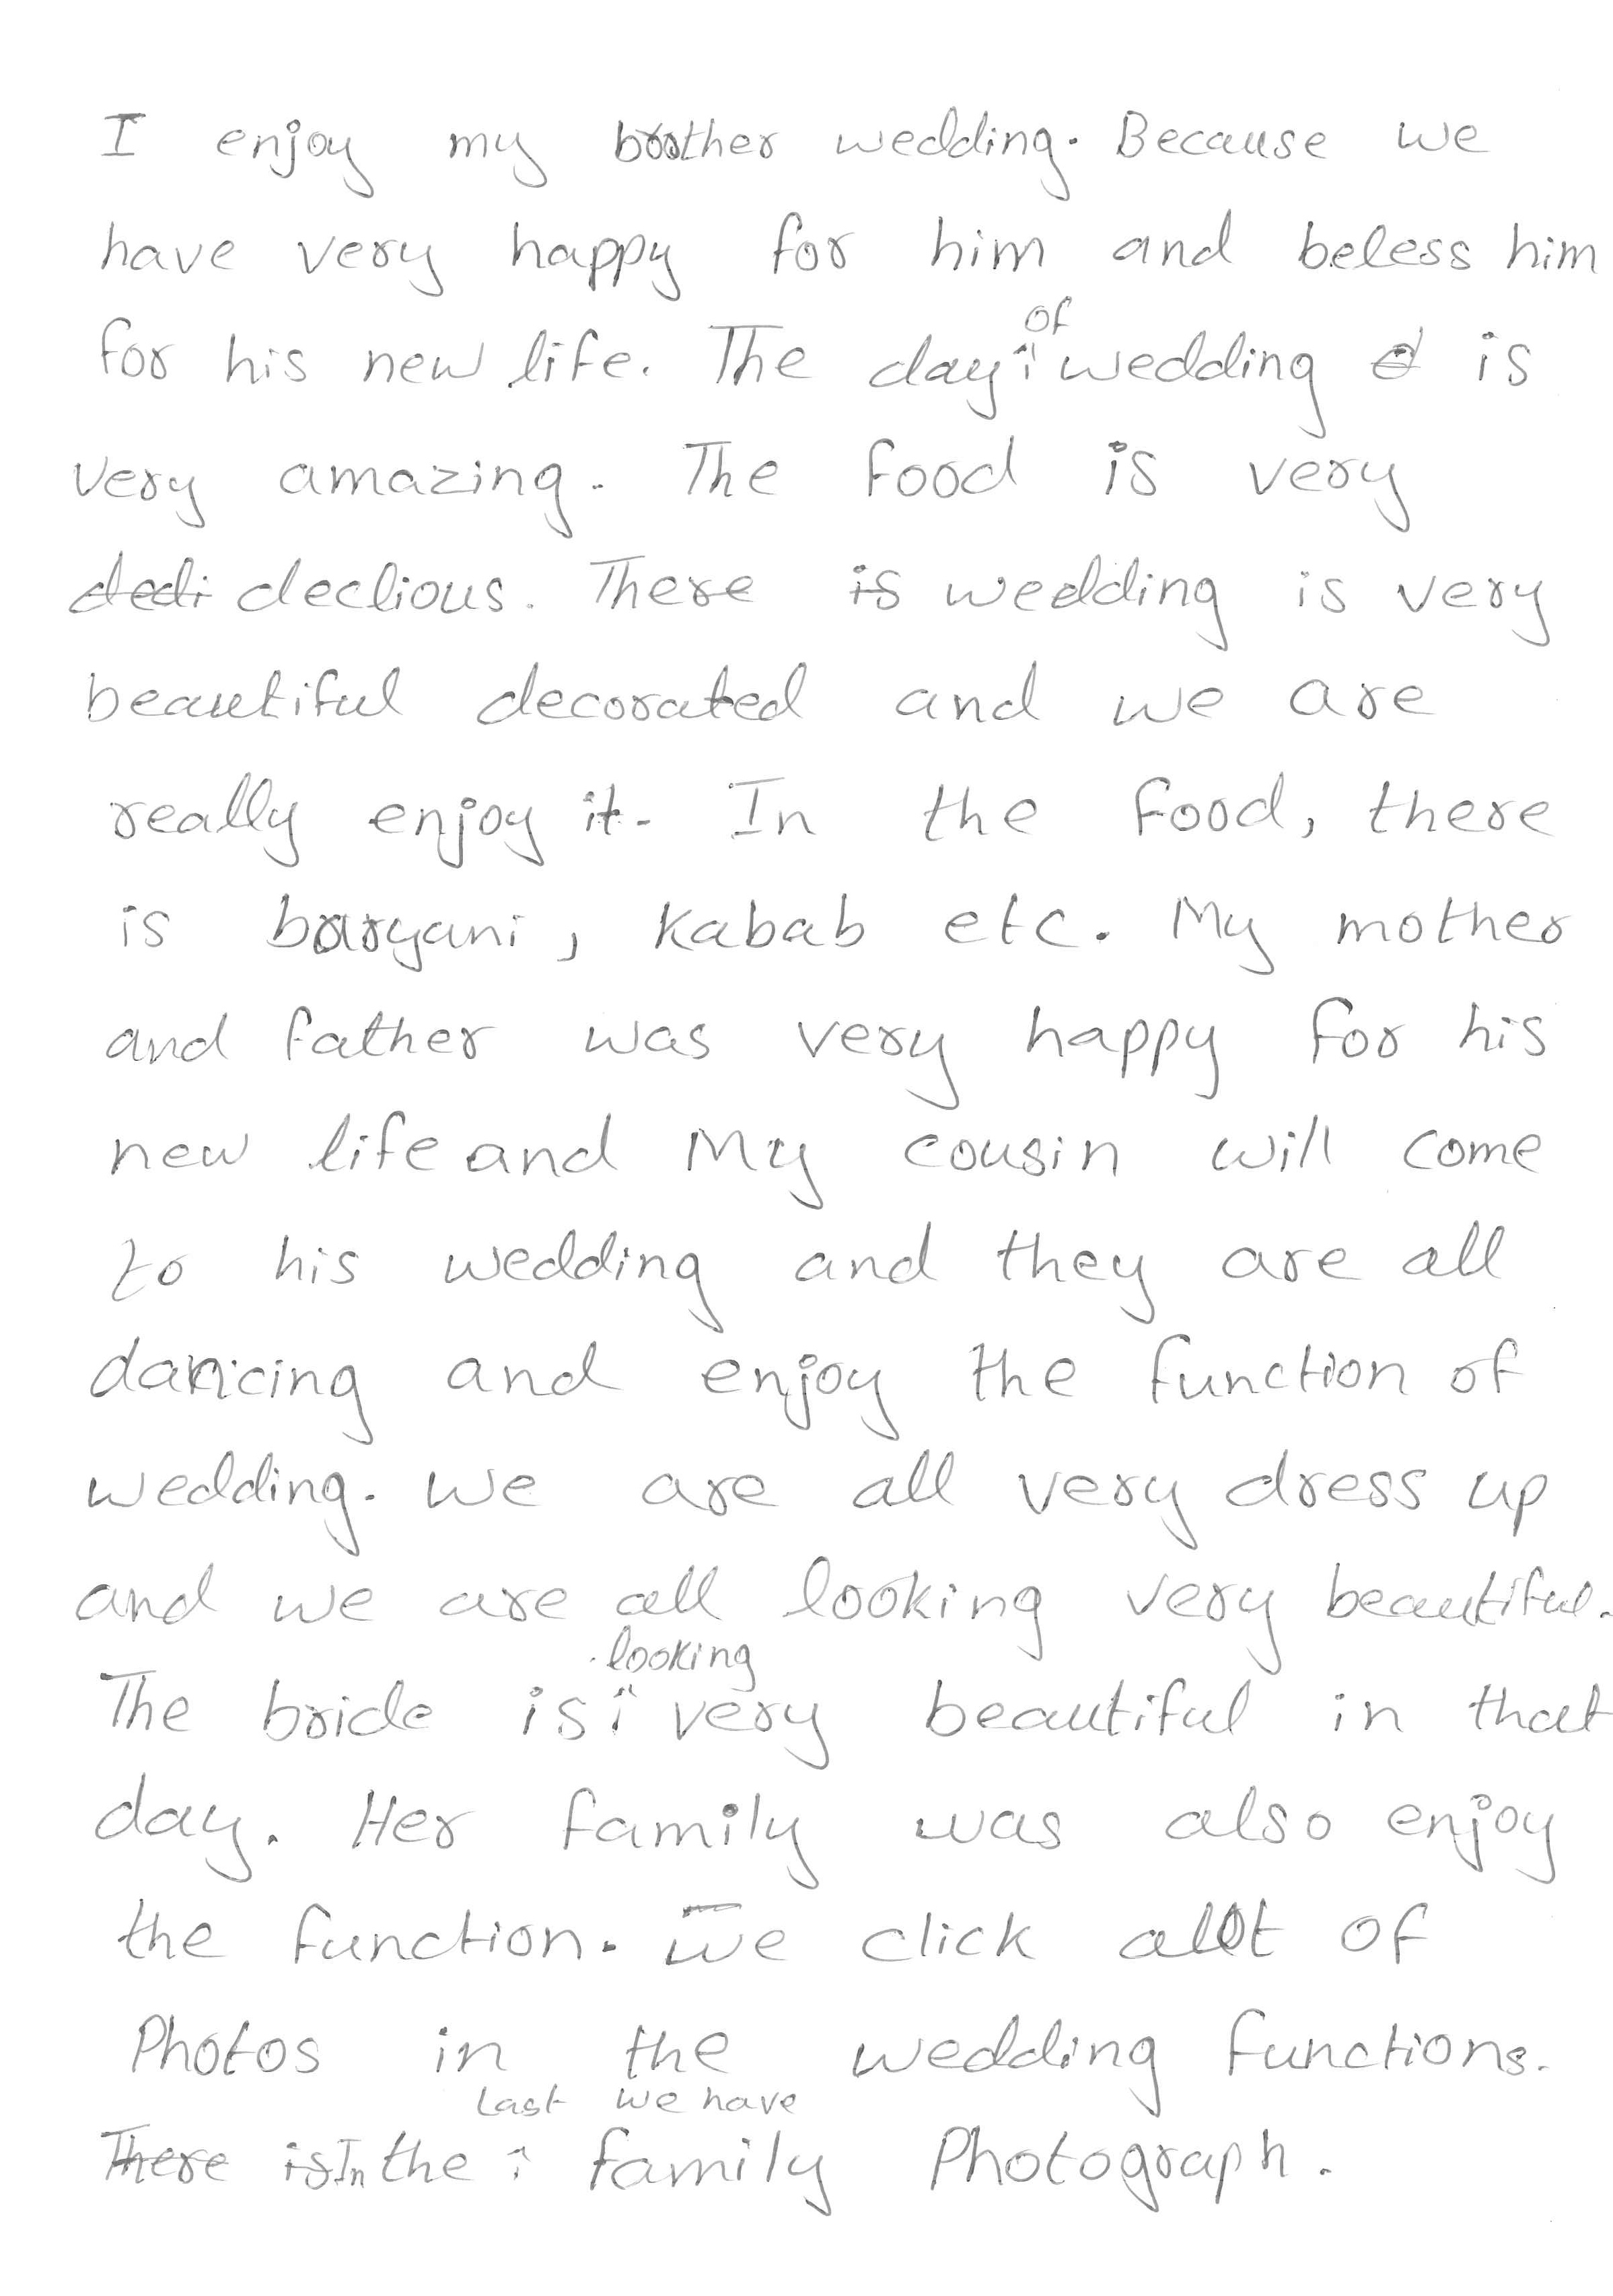 I enjoy my brother wedding. Because we
have very happy for him and beless him
for his new life. The day of wedding is
very amazing. The food is very
dedi declious. There is wedding is very
beautiful decorated and we are
really enjoy it. In the food, there
is baryani, kabab etc. My mother
and father was very happy for his
new life and My cousin will come
to his wedding and they are all
dancing and enjoy the function of
wedding. we are all very dress up
and we are all looking very beautiful.
The bride is looking very beautiful in that
day. Her family was also enjoy
the function. we click alot of
Photos in the wedding functions.
There is In the Last we have family Photograph.